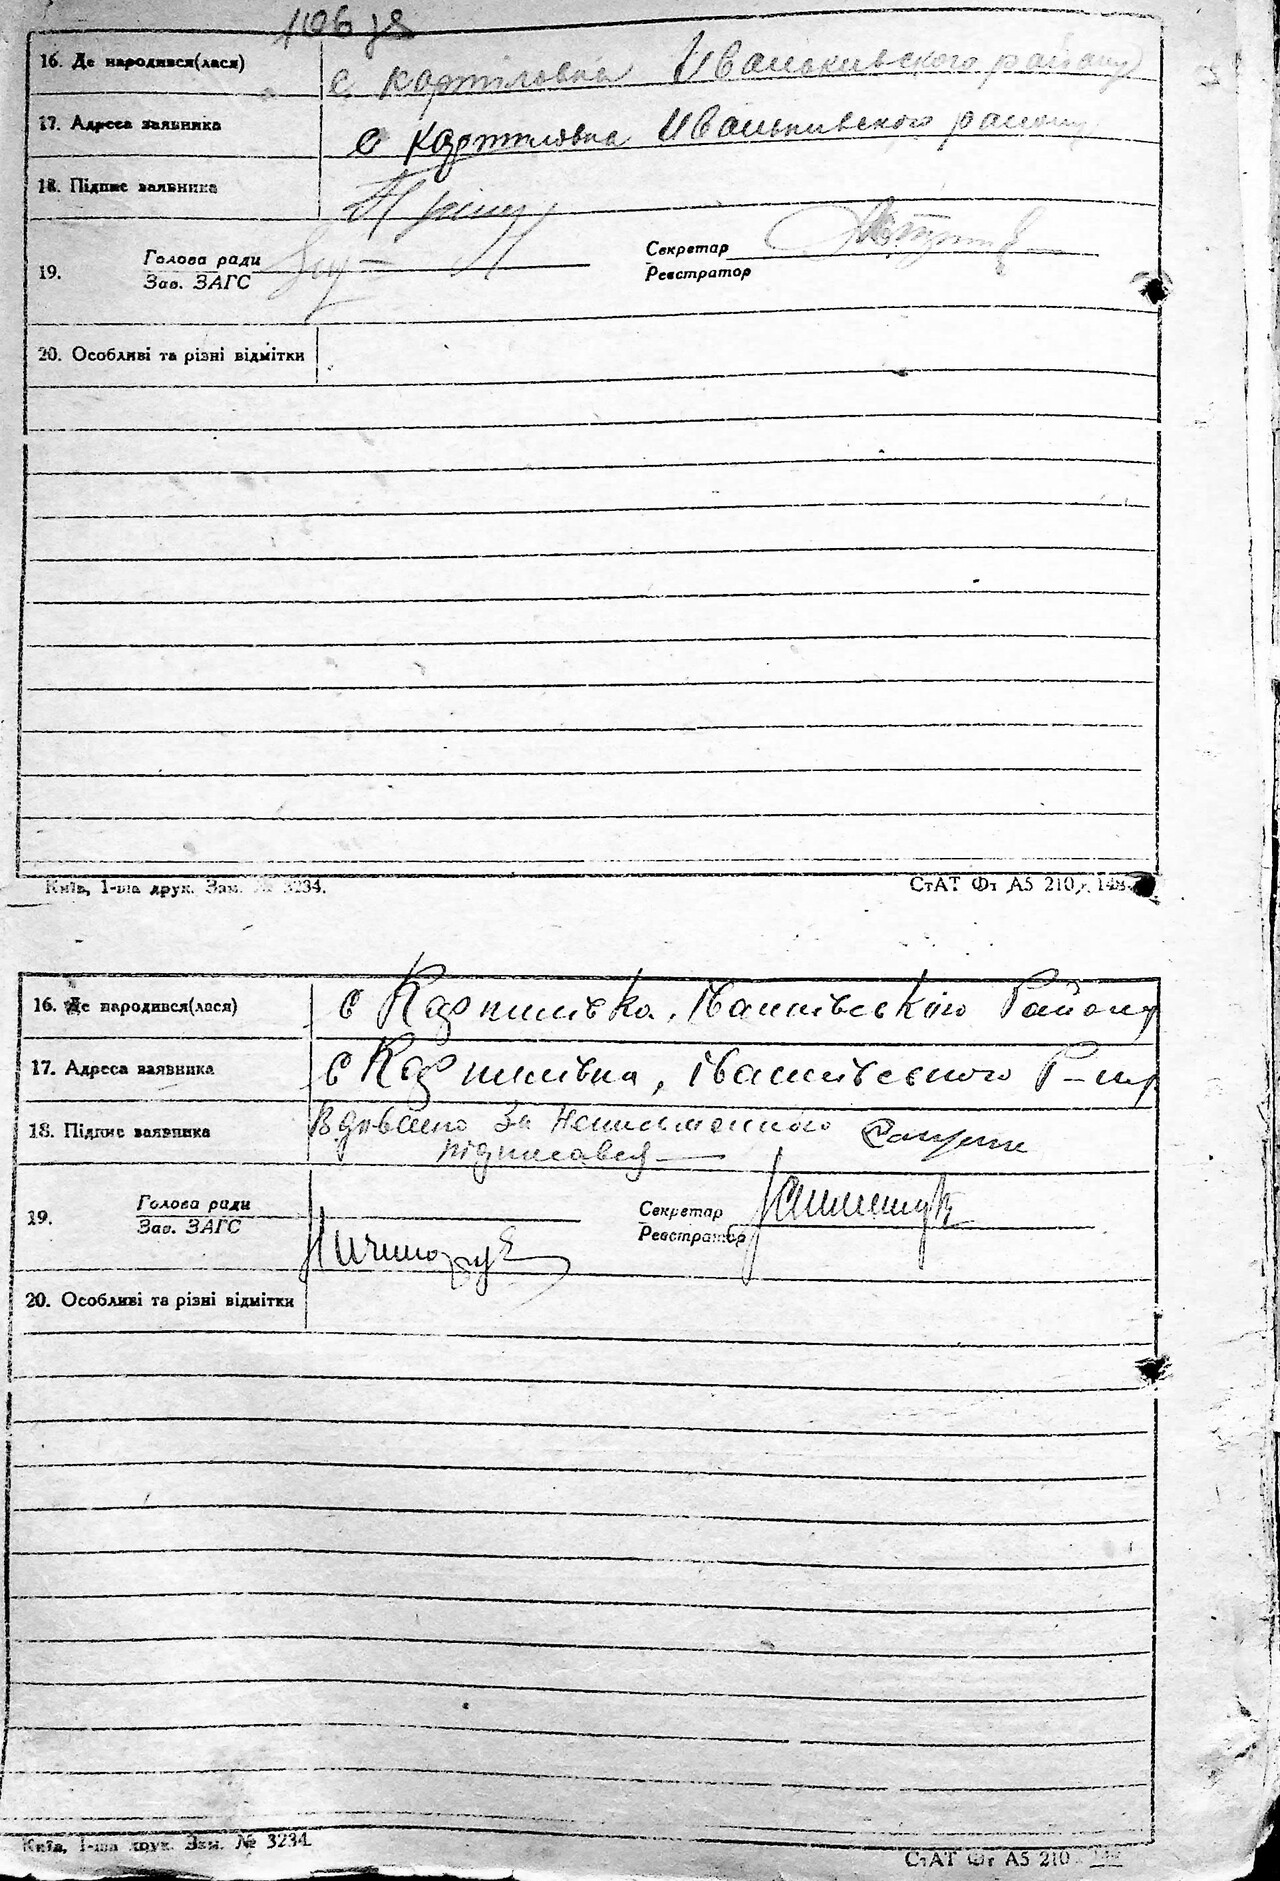 106 зв
16. Де народився(лася) с. Картіловка Иванкивского району
17. Адреса заявника с Картіловка Иванкивского району
18. Підпис заявника
Голова ради Секретар
19.
Зав. ЗАГС Реєстратор
20. Особливі та різні відмітки
Київ, 1-ша друк. Зам. № 3234. СтАТ Фт А5 210 148
16. Де народився(лася) с Карпилівка, Іванківського Району
17. Адреса заявника с Карпилівка, Іванківського Р-ну
18. Підпис заявника за неписьменного
підписався
Голова ради Секретар
19.
Зав. ЗАГС Реєстратор
20. Особливі та різні відмітки
Київ, 1-ша друк. Зам. № 3234. СтАТ Фт А5 210